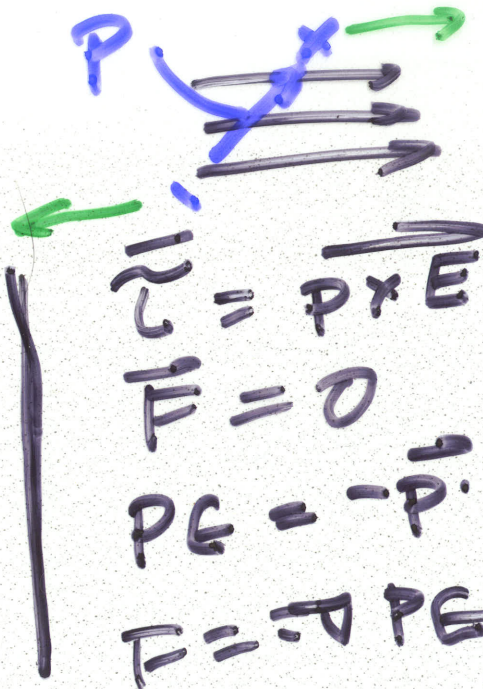 P +
-
τ = P × E
F = 0
PE = -P ·
F = -∇ PE